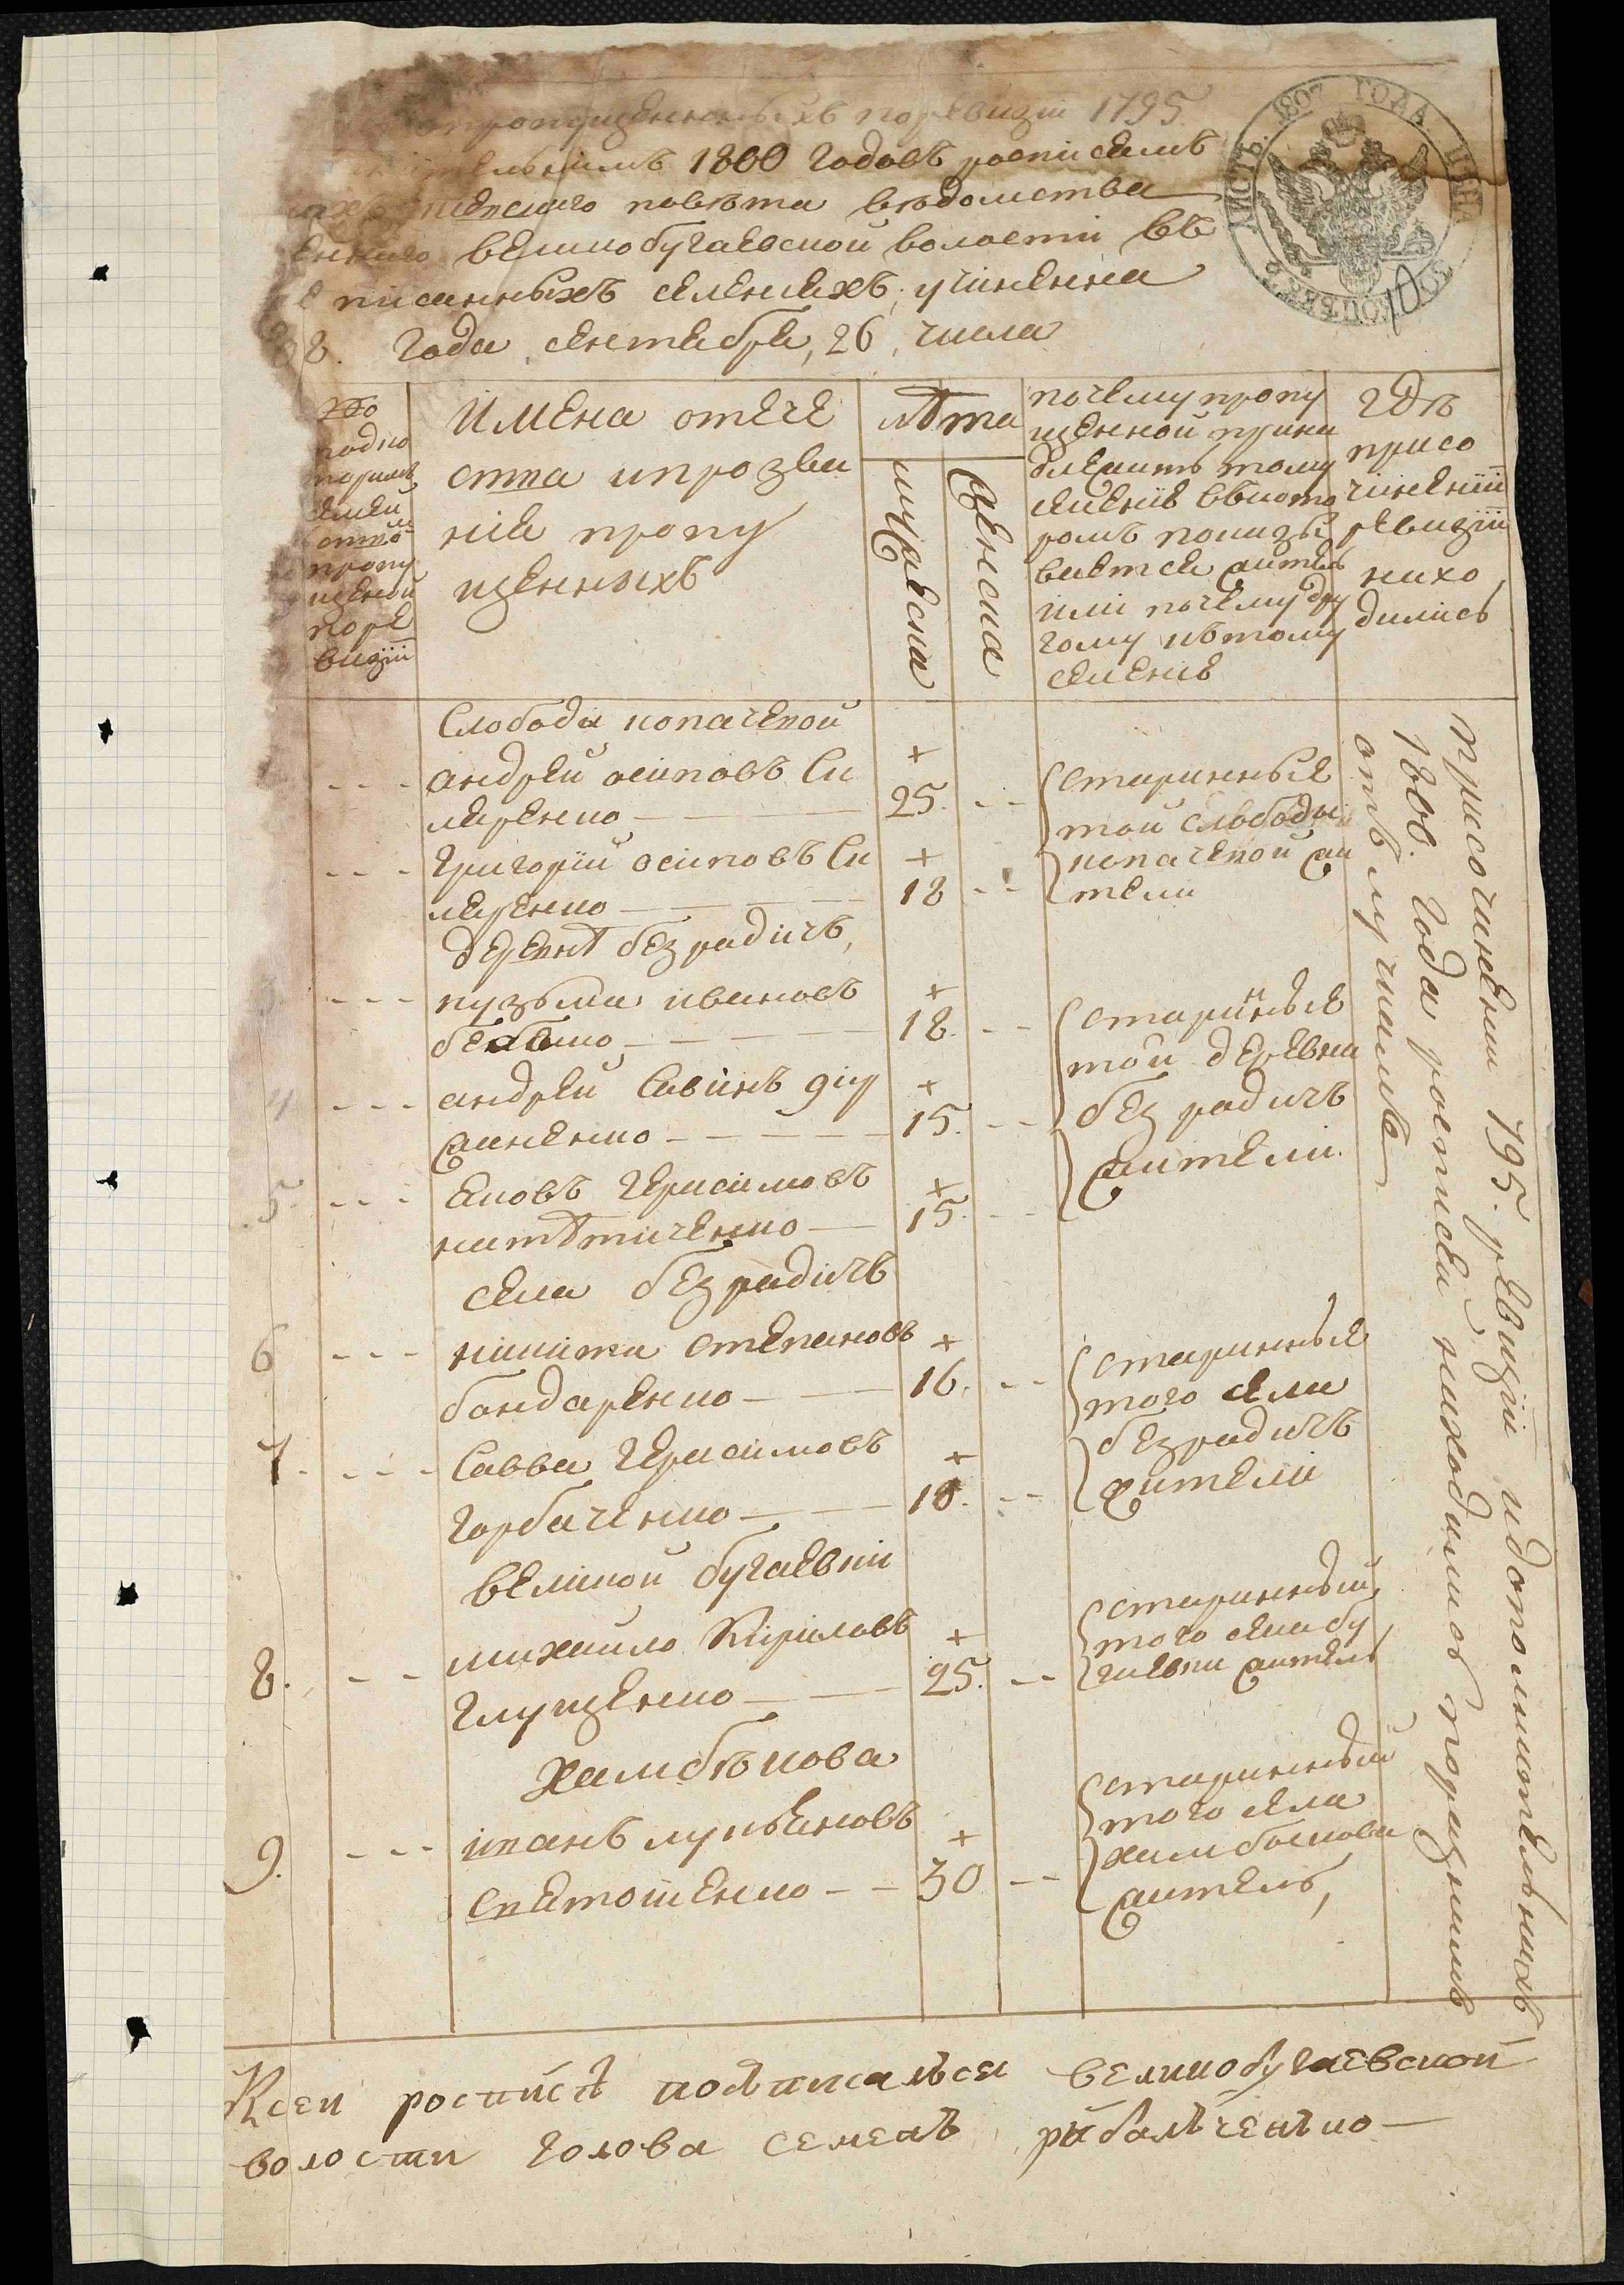 пропущенныхъ поревизіи 1795
1800 годовъ росписямъ
повѣта вѣдомства
великобугаевской волости въ
писанныхъ селеніяхъ, учиненна
года сентебря, 26, числа
ЛИСТЪ. 1807 ГОДА. ЦѢНА
подко
торимъ
пропу
щеной
поре
визіи
имена отече
ства ипрозва
нія пропу
щенныхъ
лѣта
мужеска
женска
почему пропу
щенной прина
длежитъ тому
селенію вкото
ромъ показы
вается житель
или почему дру
гому нѣтому
селенію
гдѣ
присо
чиненіи
ревизіи
нахо
дились
Слобода копачевой
андрей осиповъ Ск
ляренко
+
25.
старинные
той слободы
копачевой жи
тели
Григорій осиповъ Ск
ляренко
+
18
деревнѣ безрадичъ,
кузьма ивановъ
+
18.
старинные
той деревни
безрадичъ
жители.
андрей Савинъ
+
15.
5.
яковъ герасимовъ
+
15.
села безрадичъ
6
никита степановъ
бондаренко
+
16.
старинные
того села
безрадичъ
жители
7.
Савва герасимовъ
горбаченко
+
18.
великой бугаевки
8.
михайло Кириловъ
глущенко
+
25.
старинный
того села бу
гаевки житель
халмбѣкова
9.
иванъ лукьяновъ
святошенко
+
30
старинный
того села
халмбекова
житель,
присочинении 795. ревизіи идополнительныхъ
1800. года росписей находились поразнымъ
отълучкамъ
Ксеи росписѣ подписалься великобугаевской
волости голова семенъ рыбальченько